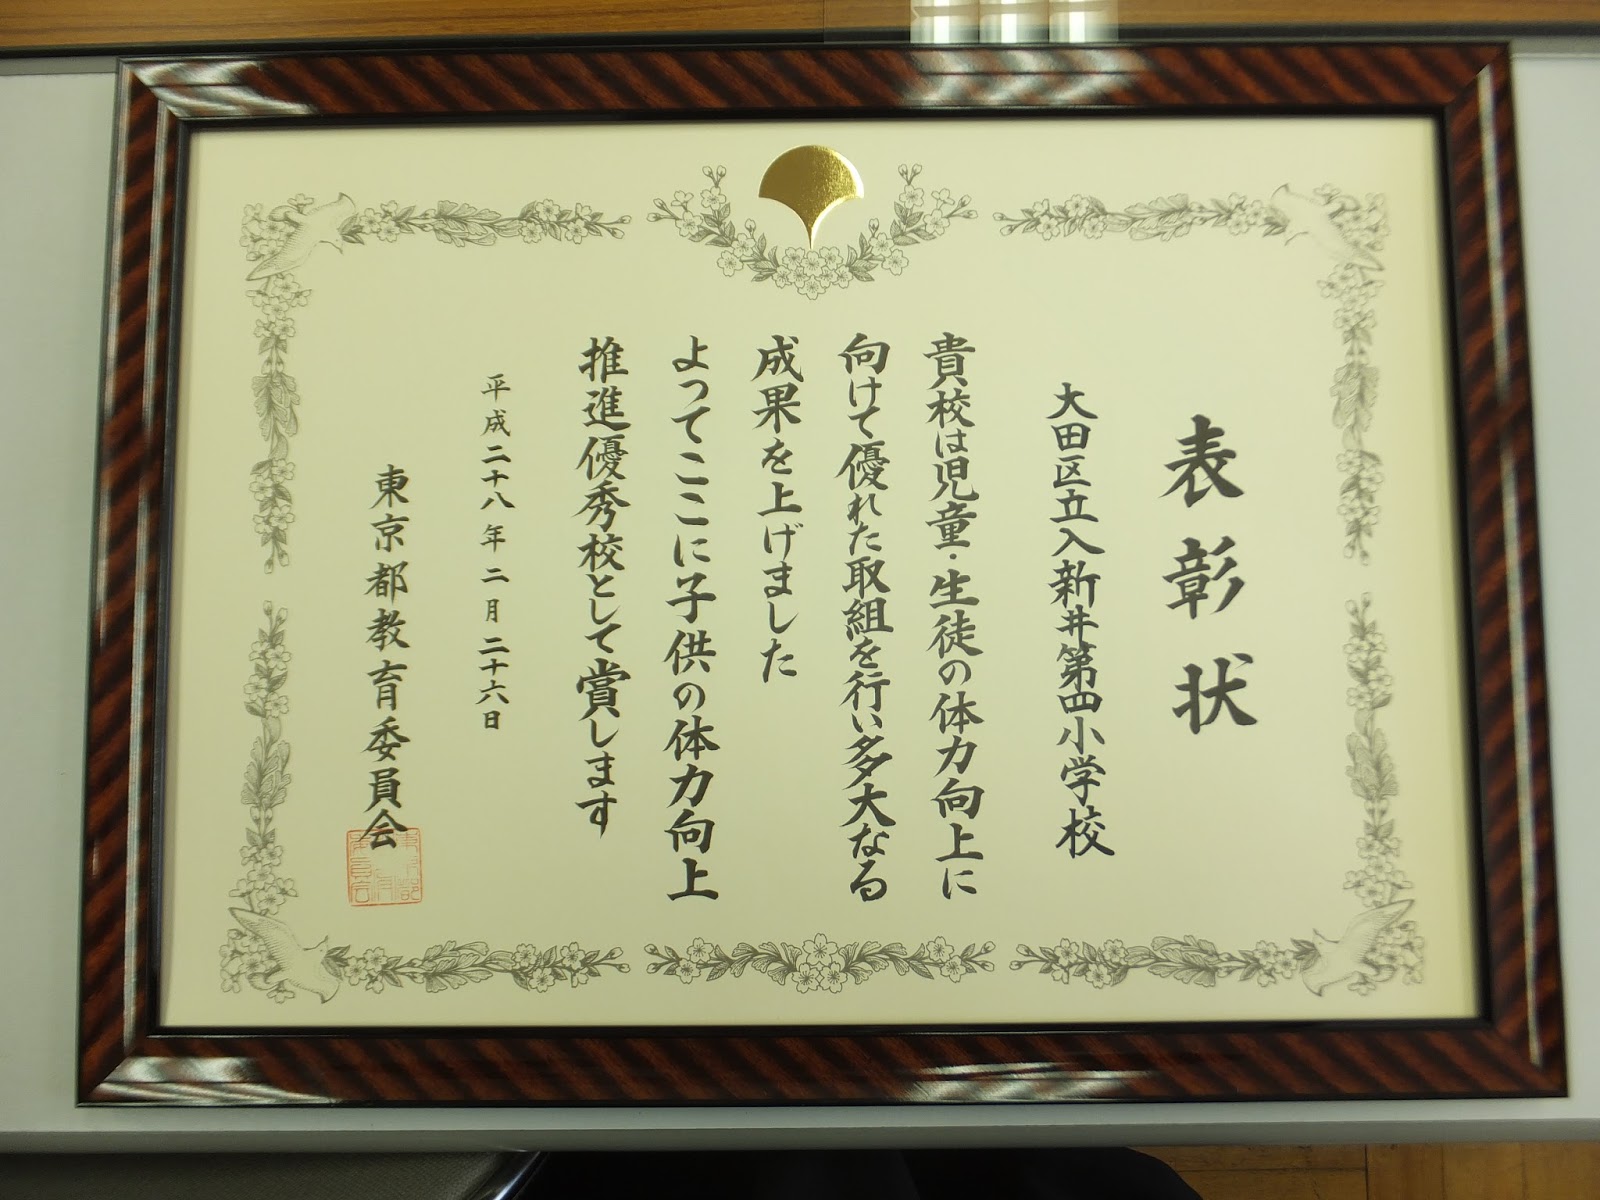 表彰状
大田区立入新井第四小学校
貴校は児童・生徒の体力向上に
向けて優れた取組を行い多大なる
成果を上げました
よってここに子供の体力向上
推進優秀校として賞します
平成二十八年二月二十六日
東京都教育委員会